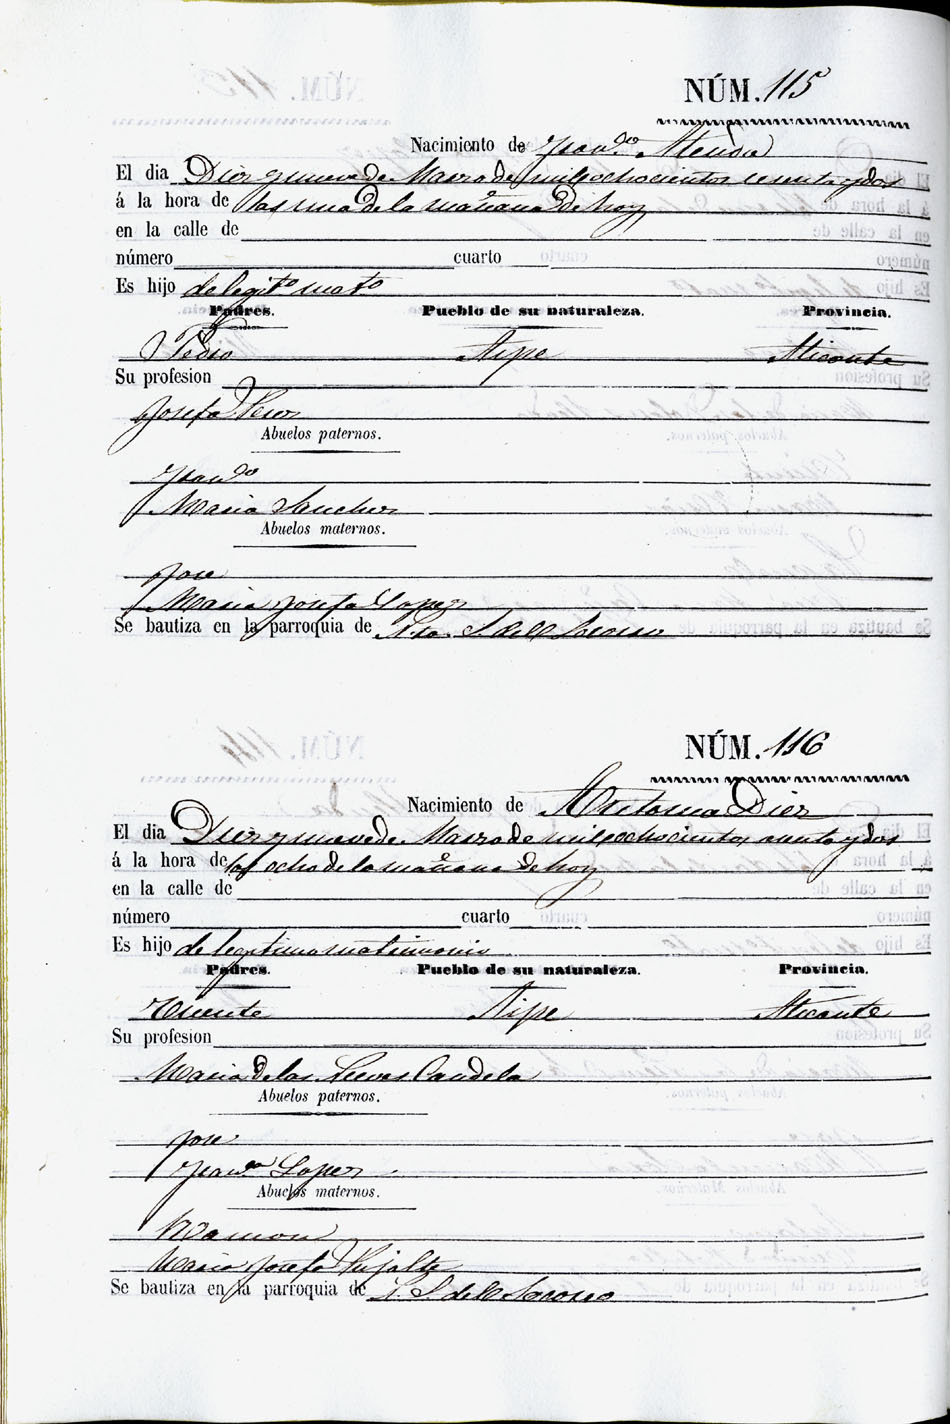 NÚM. 115
Nacimiento de Franco Atencia
El dia Diez y nueve de Marzo de mil ochocientos sesenta y dos
á la hora de las una de la mañana de hoy
en la calle de
número cuarto
Es hijo de legito mato
Padres. Pueblo de su naturaleza. Provincia.
Pedro Aspe Alicante
Su profesion
Josefa
Abuelos paternos.
Franco
Maria Sanchez
Abuelos maternos.
Jose
Maria Josefa Lopez
Se bautiza en la parroquia de Ntra. S. del Socorro
NÚM. 116
Nacimiento de Antonia Diez
El dia Diez y nueve de Marzo de mil ochocientos sesenta y dos
á la hora de las ocho de la mañana de hoy
en la calle de
número cuarto
Es hijo de legitimo matrimonio
Padres. Pueblo de su naturaleza. Provincia.
Vicente Aspe Alicante
Su profesion
Maria de las Nieves Candela
Abuelos paternos.
Jose
Franca Lopez
Abuelos maternos.
Ramon
Maria Josefa
Se bautiza en la parroquia de N. S. del Socorro